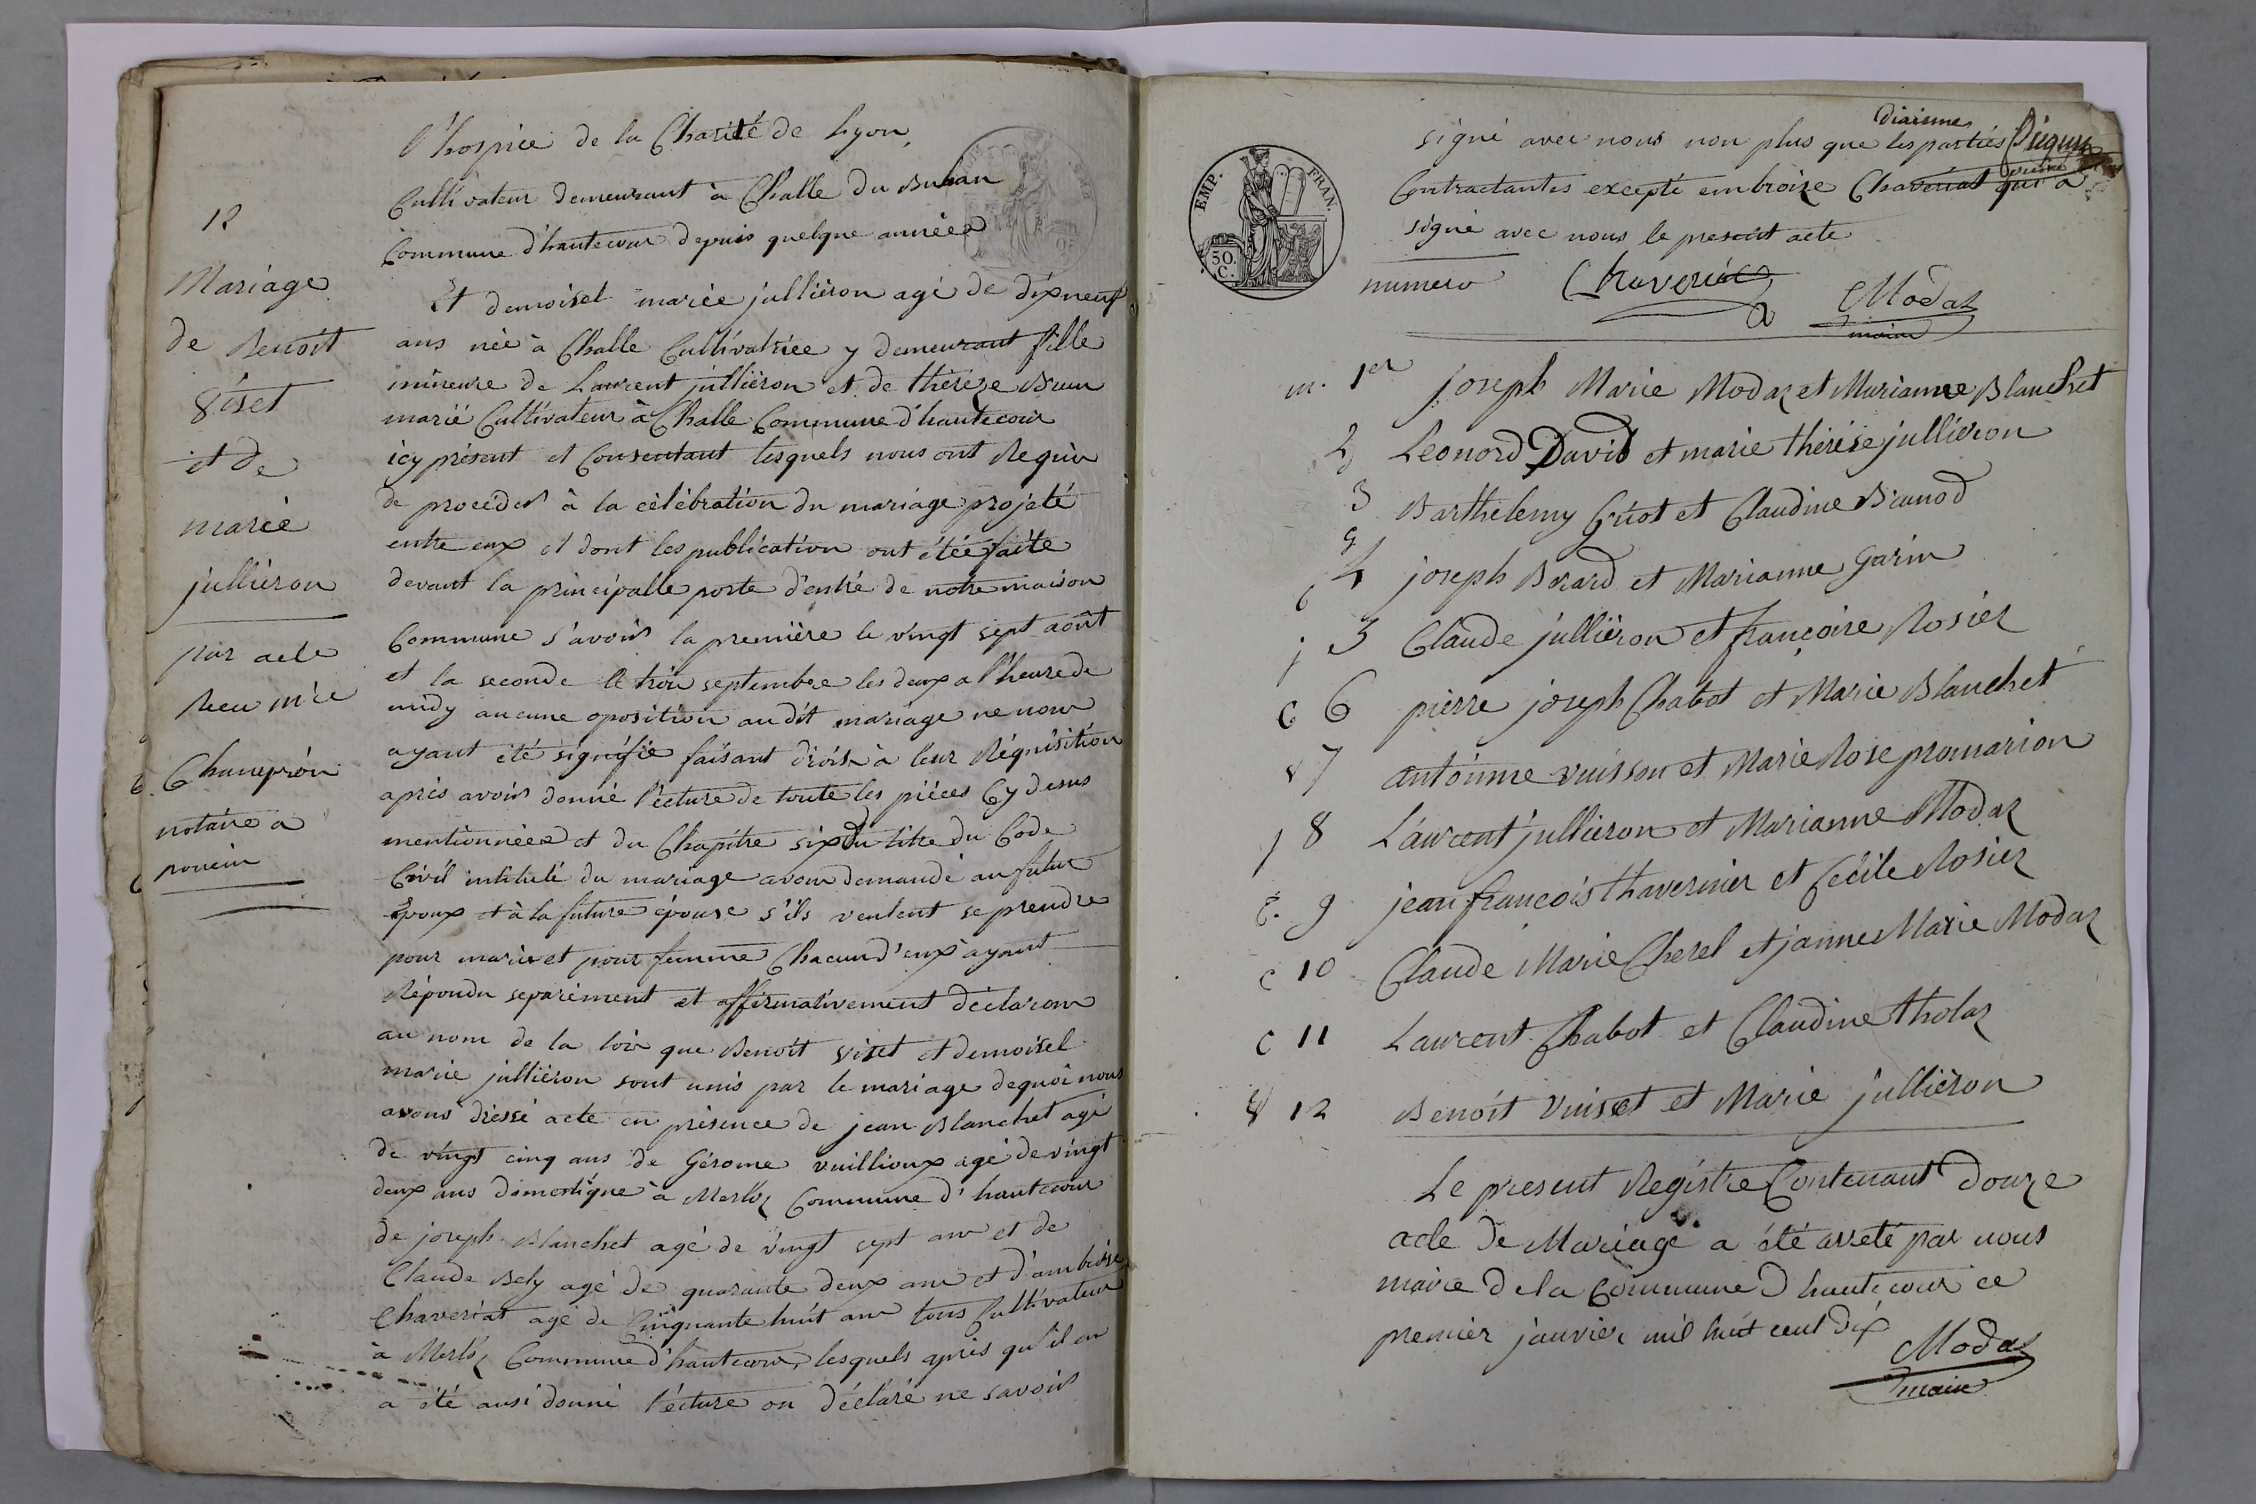 l'hospice de la Charité de Lyon,
Cultivateur demeurant à Challe du Buhan
Commune d'hautecour depuis quelque année
12
Mariage
de Benoit
Viset
et de
marie
jullieron
par acte
Recu
Chanepron
notaire a
poncin
Et demoisel mariée jullieron agé de dixneuf
ans née à Challe Cultivatrice y demeurant fille
mineure de Laurent jullieron et de thèreze Brun
marié Cultivateur à Challe Commune d'hautecour
icy présent et Consentant lesquels nous ont Requis
de proceder à la cèlébration du mariage projeté
entre eux et dont les publication ont étée faite
devant la principalle porte d'entré de notre maison
Commune s'avoir la première le vingt sept août
et la seconde le trois septembre les deux a l'heure de
midy aucune oposition audit mariage ne nous
ayant été signifié faisant droit à leur Réquisition
après avoir donné l'écture de toute les pièces Cy desus
mentionnées et du Chapitre six du titre du Code
Civil intitulé du mariage avons demandé au futur
époux et à la future épouse s'ils veulent se prendre
pour mari et pour femme Chacun d'eux ayant
Répondu separément et affirmativement déclarons
au nom de la loix que Benoit viset et demoisel
marie jullièron sont unis par le mariage dequoi nous
avons dressé acte en présence de jean Blanchet agé
de vingt cinq ans de Gérome vuillioux agé de vingt
deux ans domestique à Merloz Commune d'hautecour
de joseph Blanchet agé de vingt sept ans et de
Claude Bely agé de quarante deux ans et d'ambroise
Chaveriat agé de Cinquante huit ans tous Cultivateur
à Merloz Commune d'hautecour lesquels après qu'il en
a été ausi donné l'écture on déclaré ne savoir
EMP. FRAN.
30.
C.
signé avec nous non plus que les parties
Contractantes excepté embroize Chaveriat qui a
signé avec nous le present acte
numero Chaveriat Modaz
maire
1er joseph Marie Modaz et Marianne Blanchet
2 Leonord David et marie thérèse jullièron
3 Barthelemy Guot et Claudine Brunod
4 joseph Berard et Marianne Garin
5 Claude jullièron et françoise Rosier
C 6 pierre joseph Chabot et Marie Blanchet
v 7 antoinne vuisson et Marie Rose promarion
j 8 Laurent jullieron et Marianne Modaz
t. 9 jean françois thavernier et Cecile Rosier
c 10 Claude Marie Cherel et janne Marie Modaz
c 11 Laurent Chabot et Claudine tholaz
v 12 Benoit vuiset et Marie jullièron
Le present Registre Contenant Douze
acte De Mariage a été arreté par nous
maire de la Commune D hautecour ce
premier janvier mil huit cent dix
Modaz
maire